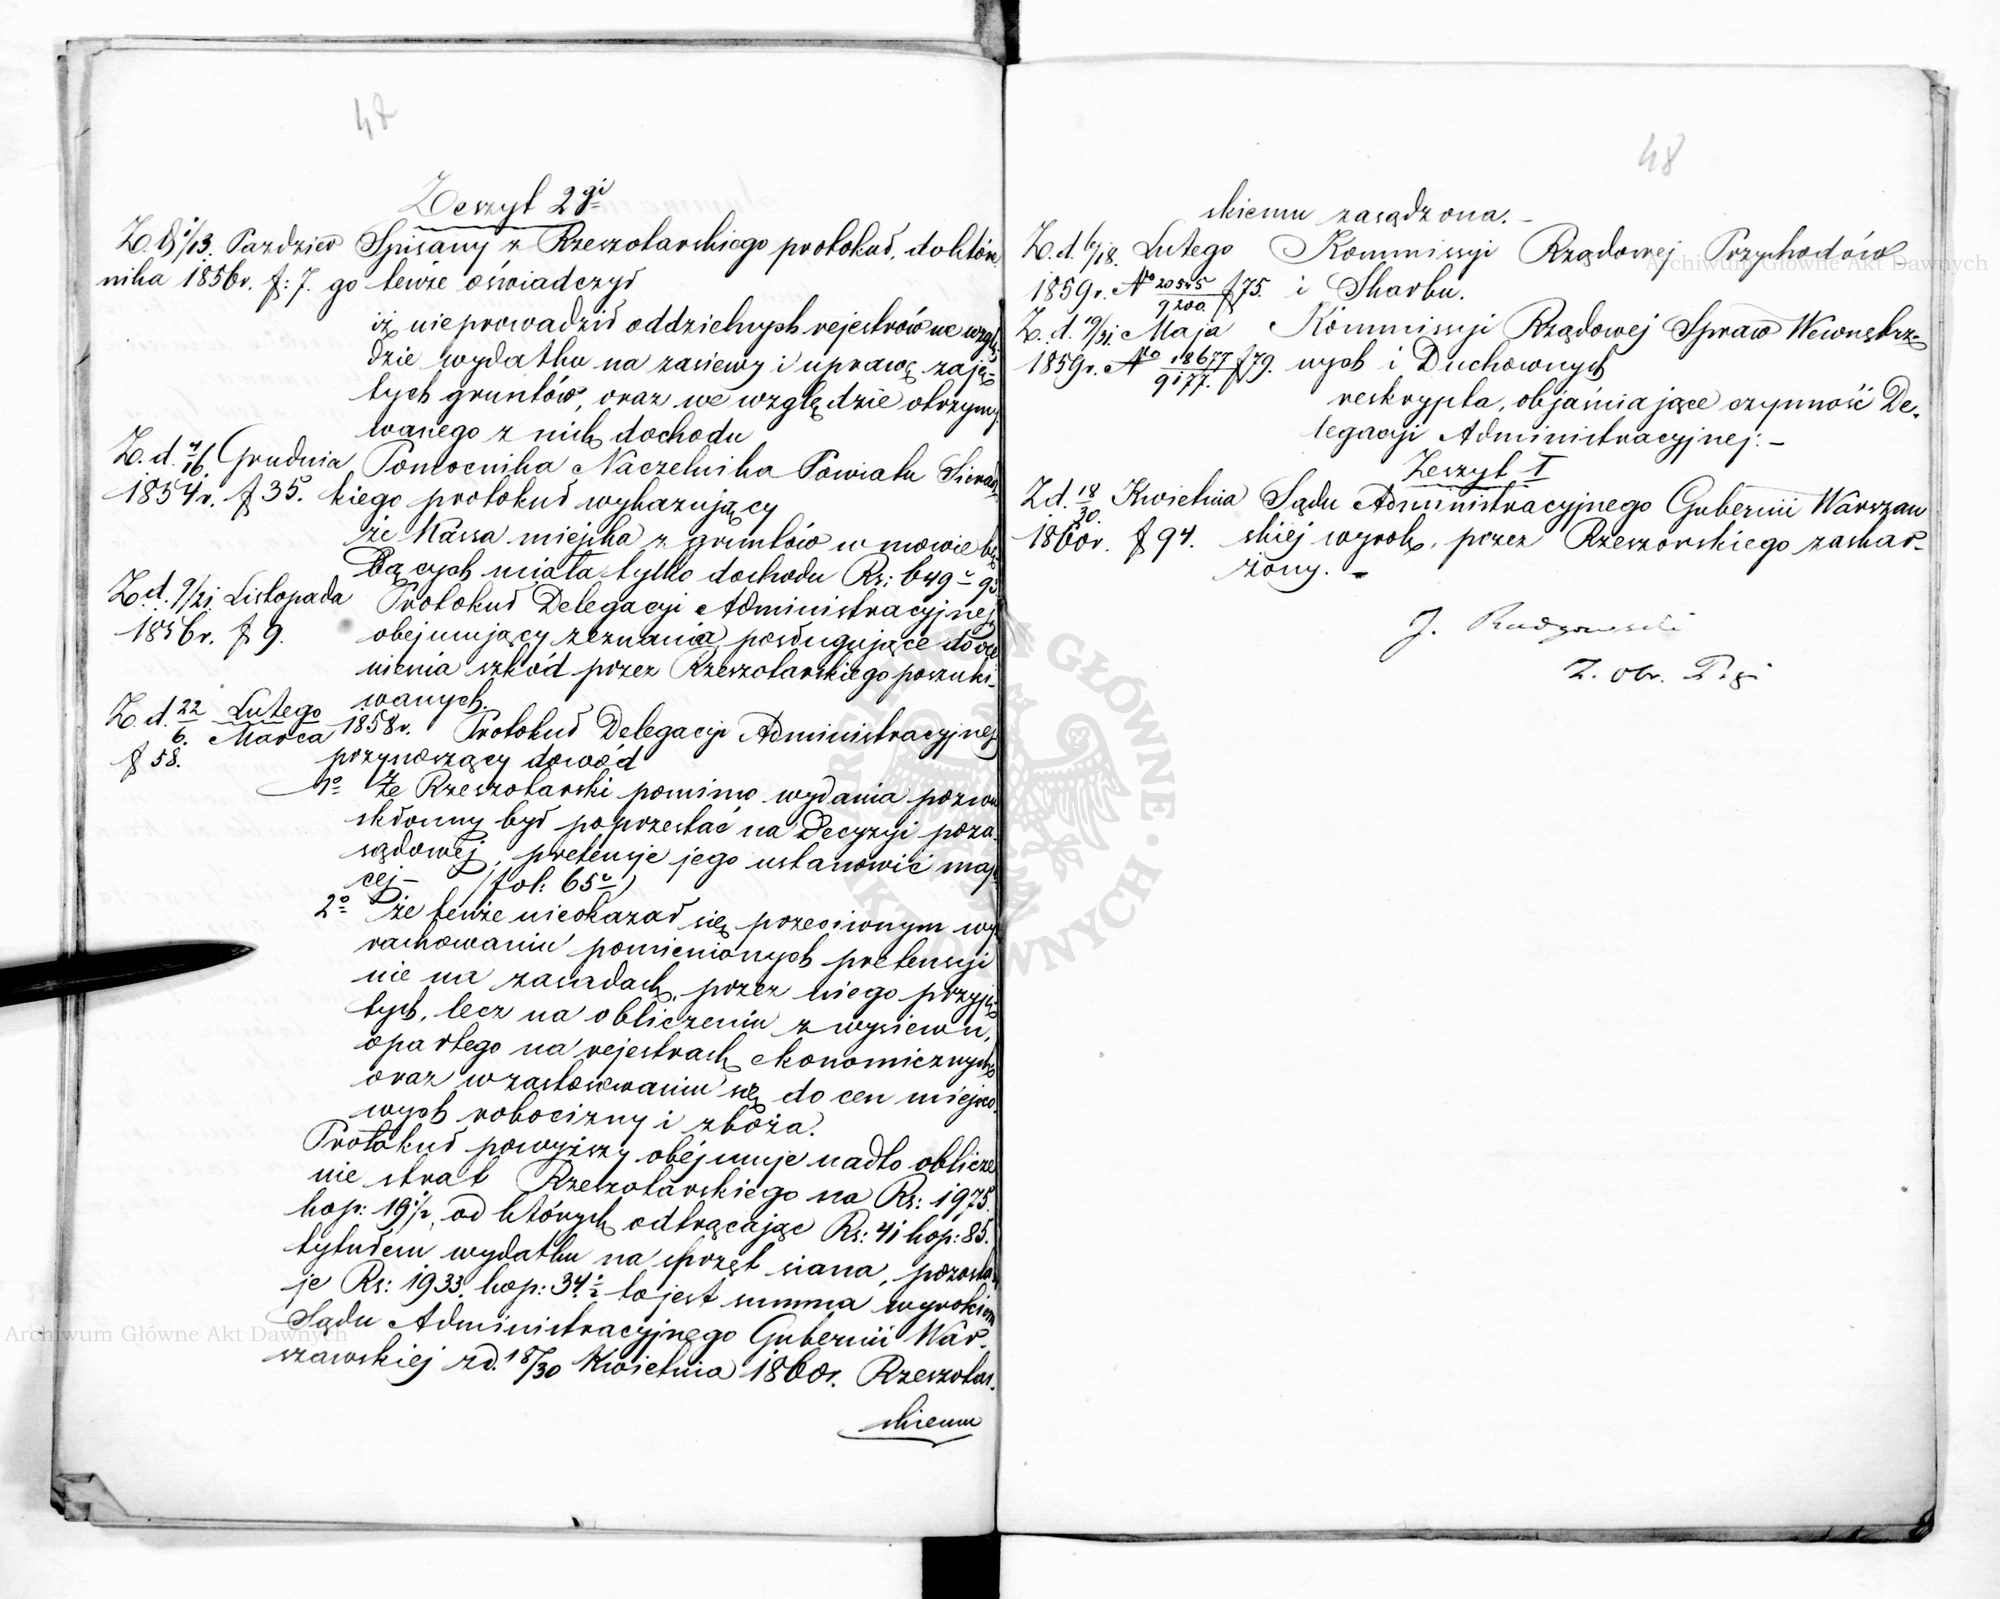 47
Zeszyt 2gi
Z. d. 1/13. Paździer Spisany z Rzeszotarskiego protokuł, w którym
nika 1856r. f: 7. go tenże oświadczył
iż nieprowadził oddzielnych rejestrów we wzglę
dzie wydatku na zasiewy i uprawę zaję-
tych gruntów, oraz we względzie otrzymy
wanego z nich dochodu
Z. d. 4/16. Grudnia Pomocnika Naczelnika Powiatu Sieradz
1854r. f 35. kiego protokuł wykazujący
że Kassa miejska z gruntów w mowie bę
dących miała tylko dochodu Rs: 649
Z. d. 9/21. Listopada Protokuł Delegacyi Administracyjnej
1856r. f 9. obejmujący zeznania posługujące do oce
nienia szkód przez Rzeszotarskiego poszuki-
wanych.
Z. d. 22 Lutego
6. Marca 1858r. Protokuł Delegacyi Administracyjnej
f 58. przynoszący dowód
1o Że Rzeszotarski pomimo wydania pozwu
skłonny był poprzestać na Decyzyi poza-
sądowej, pretensje jego ustanowić mają
cej – (fol: 65)
2o że tenże nieokazał się przeciwnym wy
rachowaniu pomienionych pretensyi
nie na zasadach, przez niego przyję
tych, lecz na obliczeniu z wysiewu,
opartego na rejestrach ekonomicznych
oraz w zastosowaniu się do cen miejsco
wych robocizny i zboża.
Protokuł powyższy obejmuje nadto oblicze
nie strat Rzeszotarskiego na Rs: 1975.
kop: 19½, od których odtrącając Rs: 41 kop: 85.
tytułem wydatku na sprzęt siana, pozosta
je Rs: 1933. kop: 34½ to jest summa wyrokiem
Sądu Administracyjnego Gubernii War-
szawskiej z d. 18/30 Kwietnia 1860r. Rzeszotar-
skiemu
48
skiemu zasądzona. –
Z. d. 6/18. Lutego Kommissyi Rządowej Przychodów
1859r. No 20545/9200. f 75. i Skarbu.
Z. d. 19/31. Maja Kommissyi Rządowej Spraw Wewnętrz-
1859r. No 18677/9177. f 79. nych i Duchownych
reskrypta, objaśniające czynność De-
legacyi Administracyjnej: –
Zeszyt I
Z d. 18/30. Kwietnia Sądu Administracyjnego Gubernii Warszaw
1860r. f 94. skiej wyrok, przez Rzeszotarskiego zaskar-
żony. –
J.
Z. Obr.
Archiwum Główne Akt Dawnych
Archiwum Główne Akt Dawnych
ARCHIWUM GŁÓWNE AKT DAWNYCH